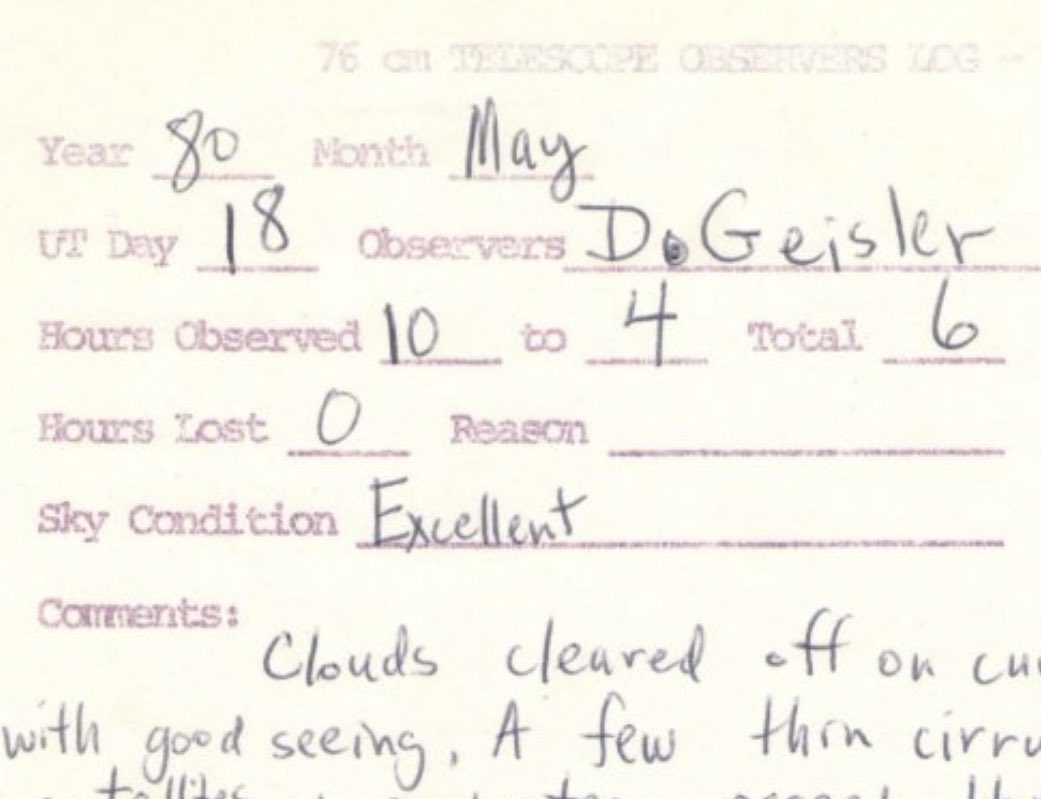 76 cm TELESCOPE OBSERVERS LOG --
Year 80 Month May
UT Day 18 Observers D. Geisler
Hours Observed 10 to 4 Total 6
Hours Lost 0 Reason
Sky Condition Excellent
Comments:
Clouds cleared off on cu
with good seeing. A few thin cirru